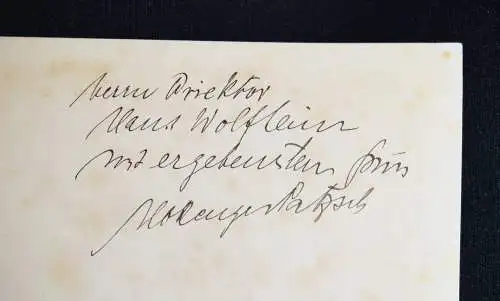 Herrn Direktor
Hans Wolflein
mit ergebenstem Gruss